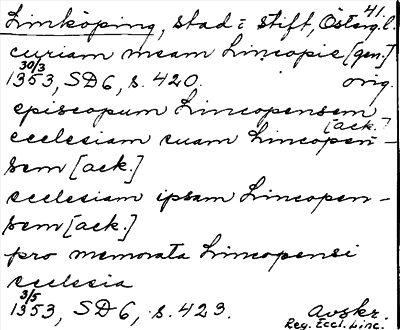 41.
Linköping, stad o. stift, Österg. l.
curiam meam Lincopie [gen.]
30/3
1353, SD6, s. 420. orig.
episcopum Lincopensem
[ack.]
ecclesiam suam Lincopen-
sem [ack.]
ecclesiam ipsam Lincopen-
sem [ack.]
pro memorata Lincopensi
ecclesia
3/5
1353, SD6, s. 423. Avskr.
Reg. Eccl. Linc.